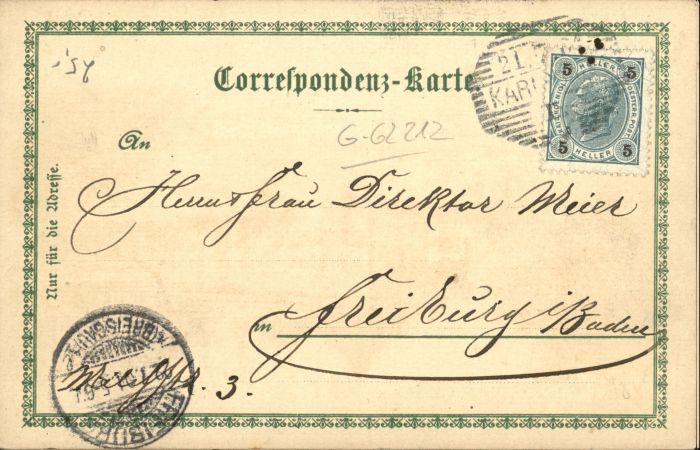 Correspondenz-Karte
21
KARL
5 HELLER 5
5 HELLER 5
G-62212
An
Herrn u Frau Direktor Meier
in Freiburg i/Baden
Nur für die Adresse.
(BREISGAU)
3.
FREIBURG